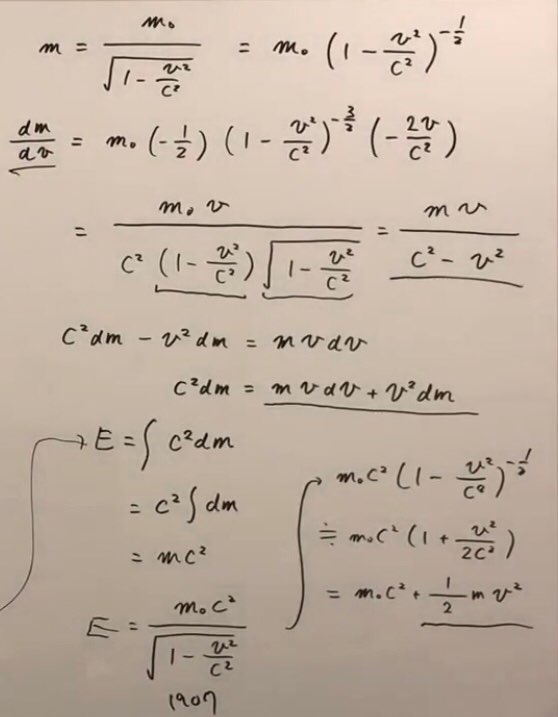 m = m₀ / √(1 - v²/c²) = m₀ (1 - v²/c²)^(-1/2)
dm/dv = m₀ (-1/2) (1 - v²/c²)^(-3/2) (-2v/c²)
= m₀ v / (c² (1 - v²/c²) √(1 - v²/c²)) = m v / (c² - v²)
c² dm - v² dm = m v dv
c² dm = m v dv + v² dm
E = ∫ c² dm
= c² ∫ dm
= mc²
E = m₀ c² / √(1 - v²/c²)
1907
m₀ c² (1 - v²/c²)^(-1/2)
≒ m₀ c² (1 + v²/2c²)
= m₀ c² + 1/2 m v²